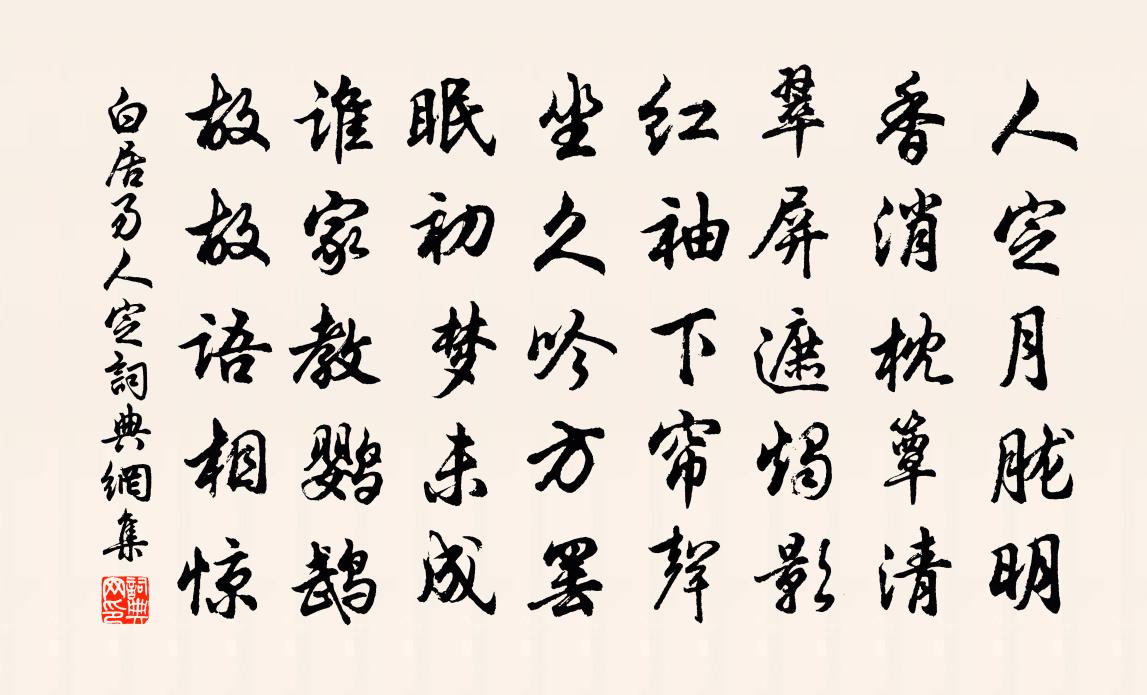 人定月胧明
香消枕簟清
翠屏遮烛影
红袖下帘声
坐久吟方罢
眠初梦未成
谁家教鹦鹉
故故语相惊
白居易人定詞典網集
詞典网印